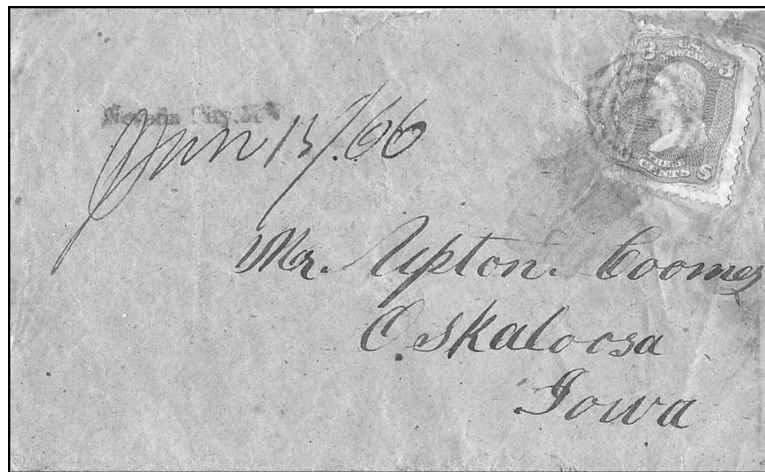 Nevada City. M
Jan 15/.66
3 U.S. 3
POSTAGE
THREE
CENTS
Mr. Upton. Coomes
Oskaloosa
Iowa